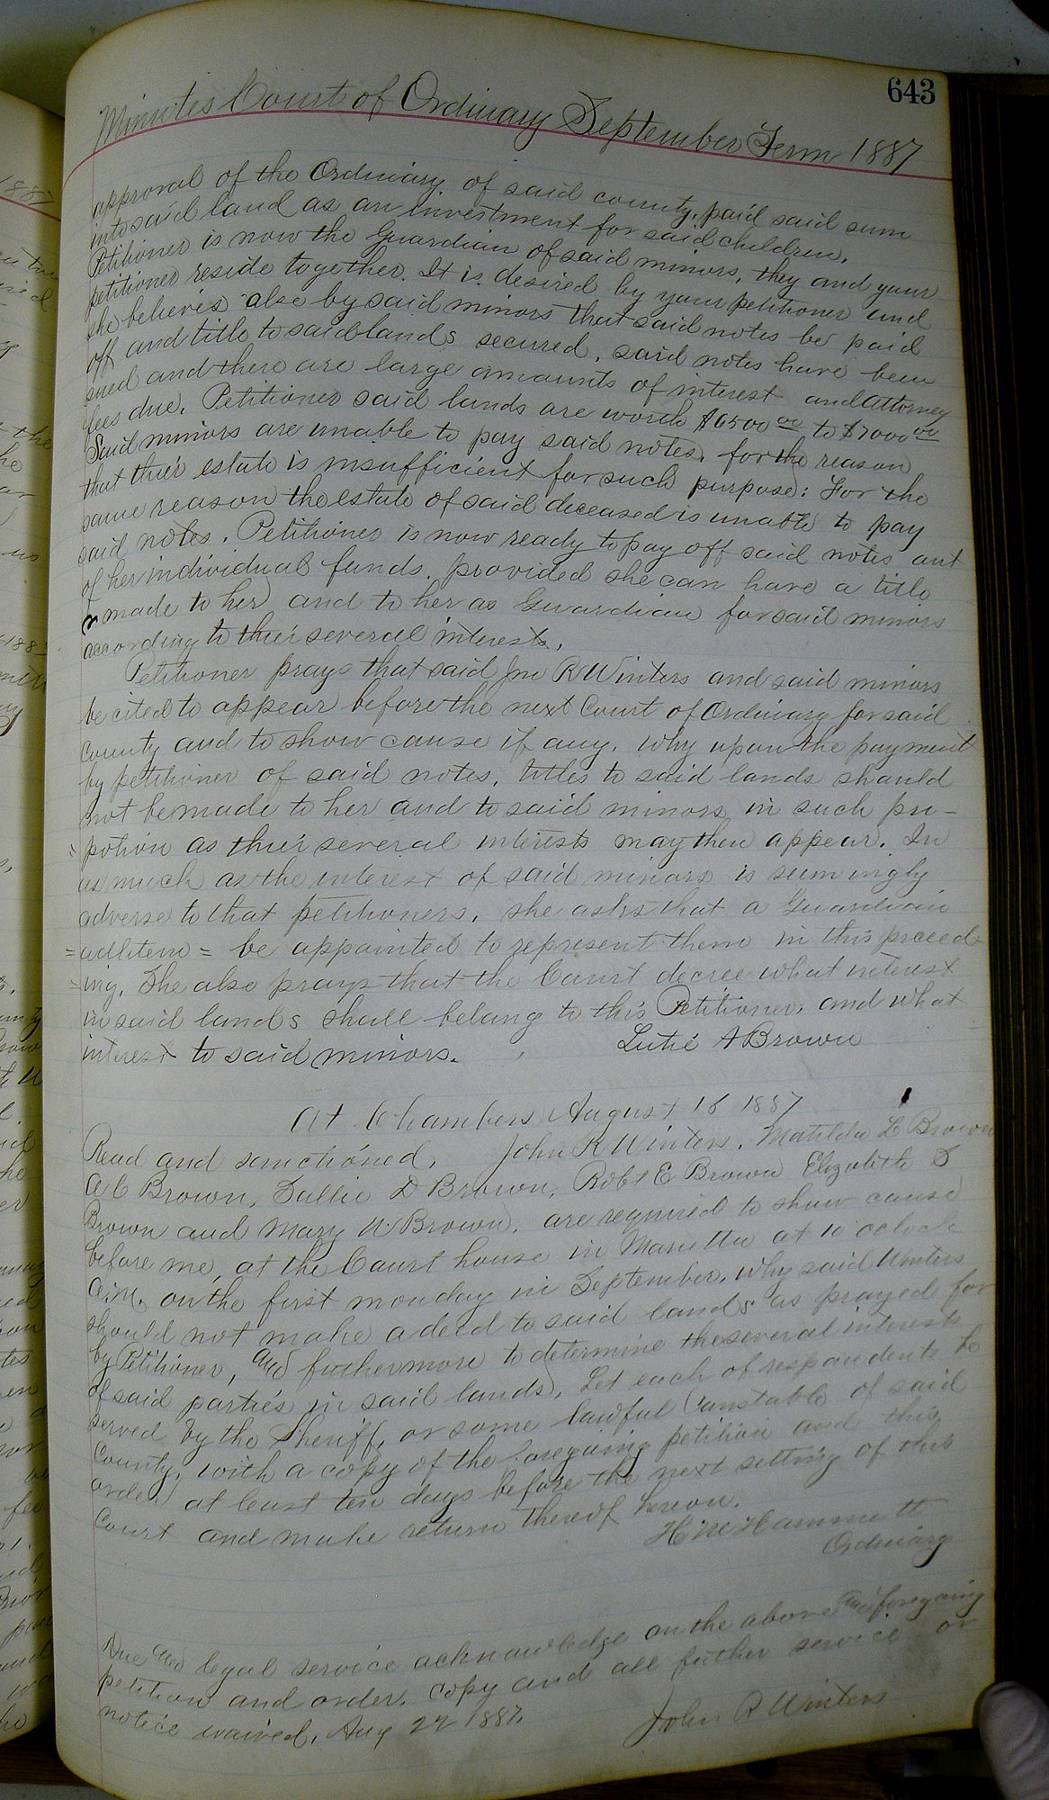 643
Minutes Court of Ordinary September Term 1887
approval of the Ordinary of said county, paid said sum
into said land as an investment for said children.
Petitioner is now the Guardian of said minors, they and your
petitioner reside together. It is desired by your petitioner and
she believes also by said minors that said notes be paid
off and title to said lands secured, said notes have been
sued and there are large amounts of interest and attorney
fees due. Petitioner said lands are worth $6500 00 to $7000 00
Said minors are unable to pay said notes, for the reason
that their estate is insufficient for such purpose: For the
same reason the estate of said deceased is unable to pay
said notes. Petitioner is now ready to pay off said notes out
of her individual funds, provided she can have a title
made to her and to her as Guardian for said minors
according to their several interests,
Petitioner prays that said Jno R Winters and said minors
be cited to appear before the next Court of Ordinary for said
County and to show cause if any, why upon the payment
by petitioner of said notes, titles to said lands should
not be made to her and to said minors in such pro-
potion as their several interests may then appear. In
as much as the interest of said minors is sumingly
adverse to that petitioners, she asks that a Guardian
= adlitem = be appointed to represent them in this proceed-
=ing. She also prays that the Court decree what interest
in said lands shall belong to this Petitioner, and what
interest to said minors.
Lutie A Brown
At Chambers August 18 1887
Read and sanctioned, John R Winters, Matilda L Brown
A C Brown, Sallie D Brown, Robt E Brown Elizabeth S
Brown and Mary W Brown, are required to show cause
before me, at the Court house in Marietta at 10 oclock
A.M. on the first monday in September, why said Winters
should not make a deed to said lands as prayed for
by Petitioner, and futhermore to determine the several interests
of said parties in said lands, Let each of respondents be
served by the Sheriff, or some lawful Constable of said
County, with a copy of the foregoing petition and this
order at least ten days before the next setting of this
Court and make return thereof hereon.
H M Hammett
Ordinary
Due and legal service acknowledge on the above and foregoing
petition and order, copy and all futher service or
notice waived, Aug 22 1887.
John R Winters